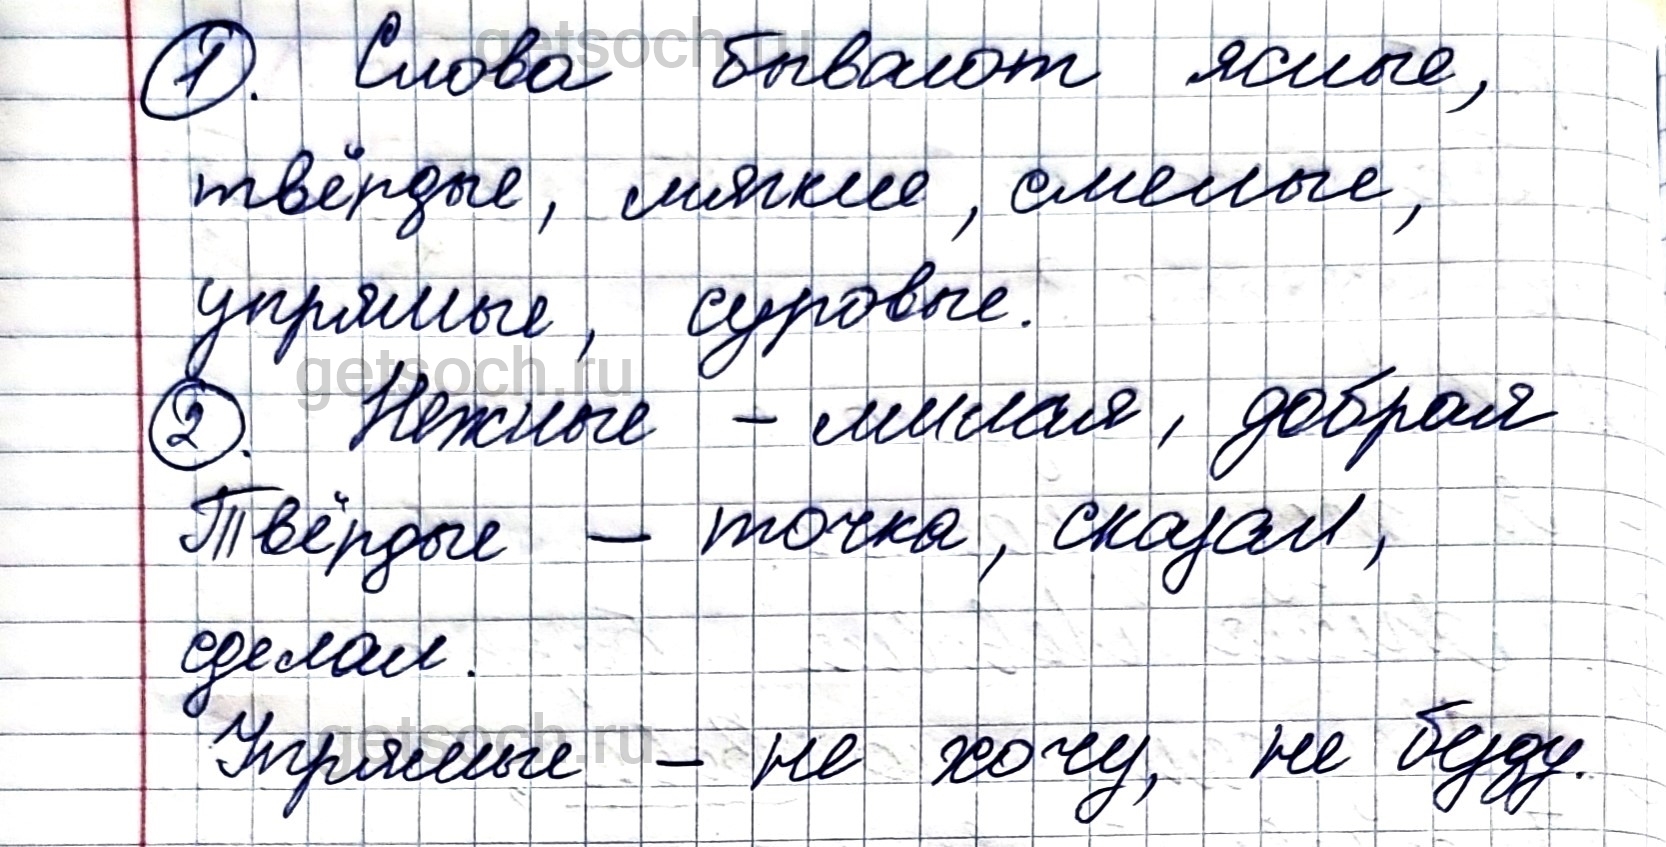 1. Слова бывают ясные,
твёрдые, мягкие, смелые,
упрямые, суровые.
2. Нежные – милая, добрая
Твёрдые – точка, сказал,
сделал.
Упрямые – не хочу, не буду.
getsoch.ru
getsoch.ru
getsoch.ru